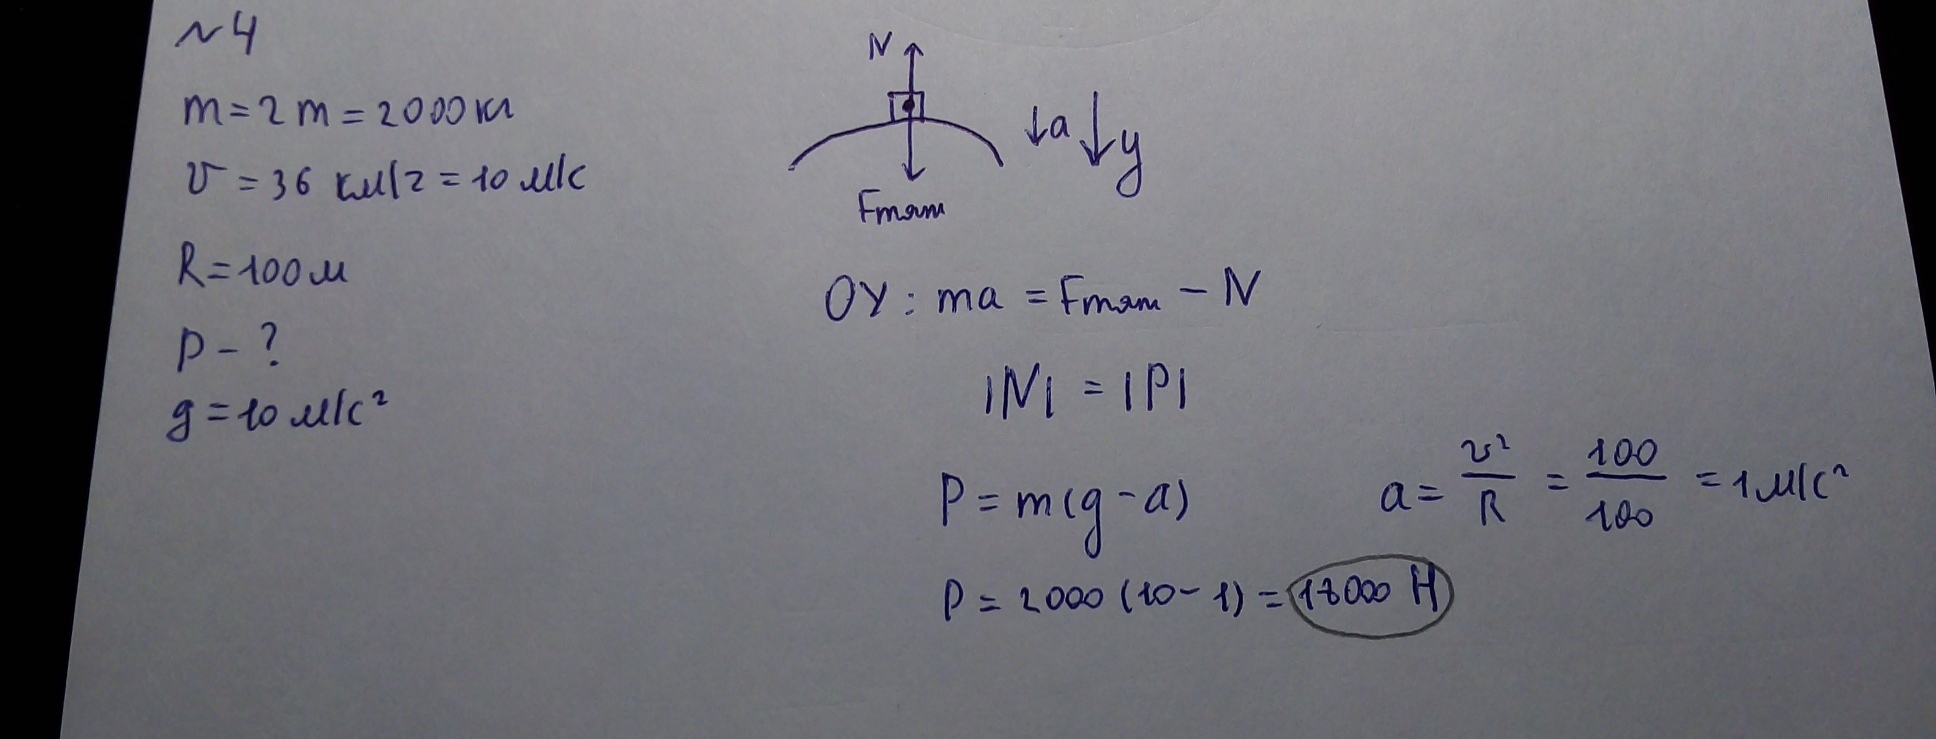 №4
m = 2 т = 2000 кг
v = 36 км/г = 10 м/с
R = 100 м
P - ?
g = 10 м/с²
N
a
y
Fтяж
OY: ma = Fтяж - N
|N| = |P|
P = m(g - a)
a = v²/R = 100/100 = 1 м/с²
P = 2000 (10 - 1) = 18000 Н